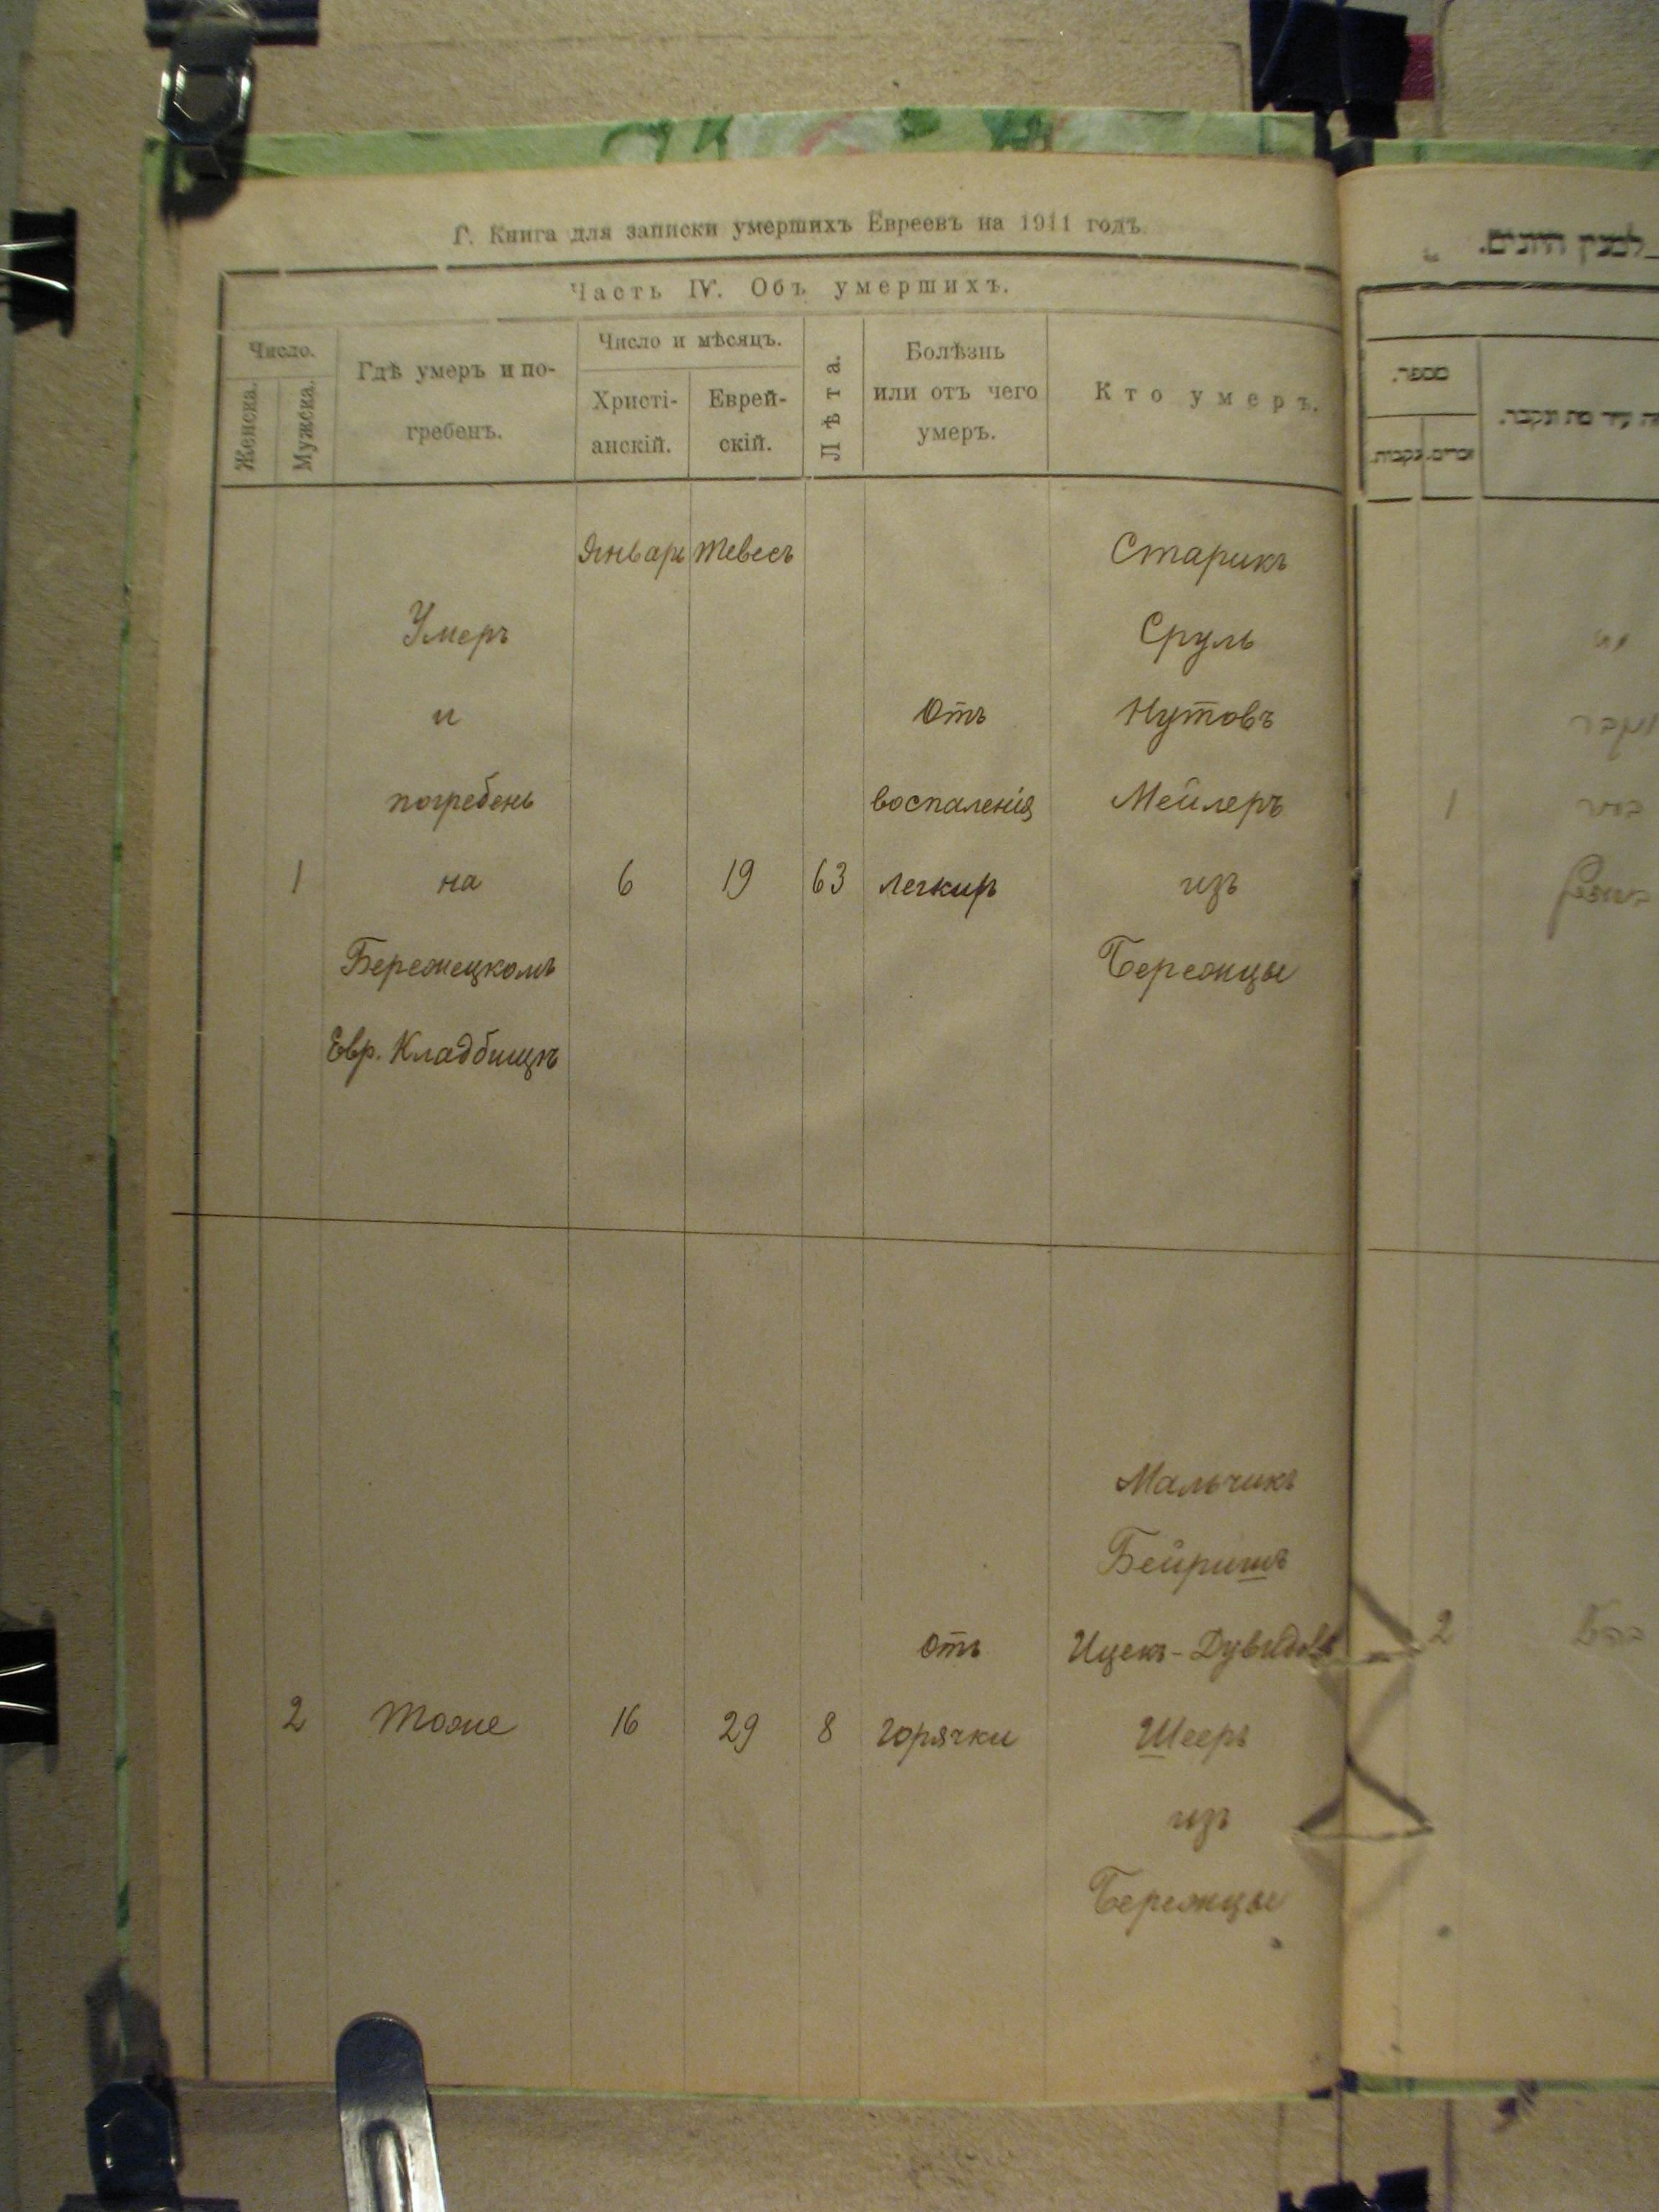 Г. Книга для записки умершихъ Евреевъ на 1911 годъ
Часть IV. Объ умершихъ.
Число.
Женска.
Мужска.
Гдѣ умеръ и по-
гребенъ.
Число и мѣсяцъ.
Христі-
анскій.
Еврей-
скій.
Лѣта.
Болѣзнь
или отъ чего
умеръ.
Кто умеръ.
Январь Тевесъ Старикъ
Умеръ Сруль
и Отъ Нутовъ
погребенъ воспаленія Мейлеръ
1 на 6 19 63 легкихъ изъ
Бережецкомъ Бережцы
Евр. Кладбищѣ
Мальчикъ
Бейришъ
Отъ Ицекъ-Дувидовъ
2 Тоже 16 29 8 горячки Шееръ
изъ
Бережцы
מספר.
זכרים. נקבות.
1
2